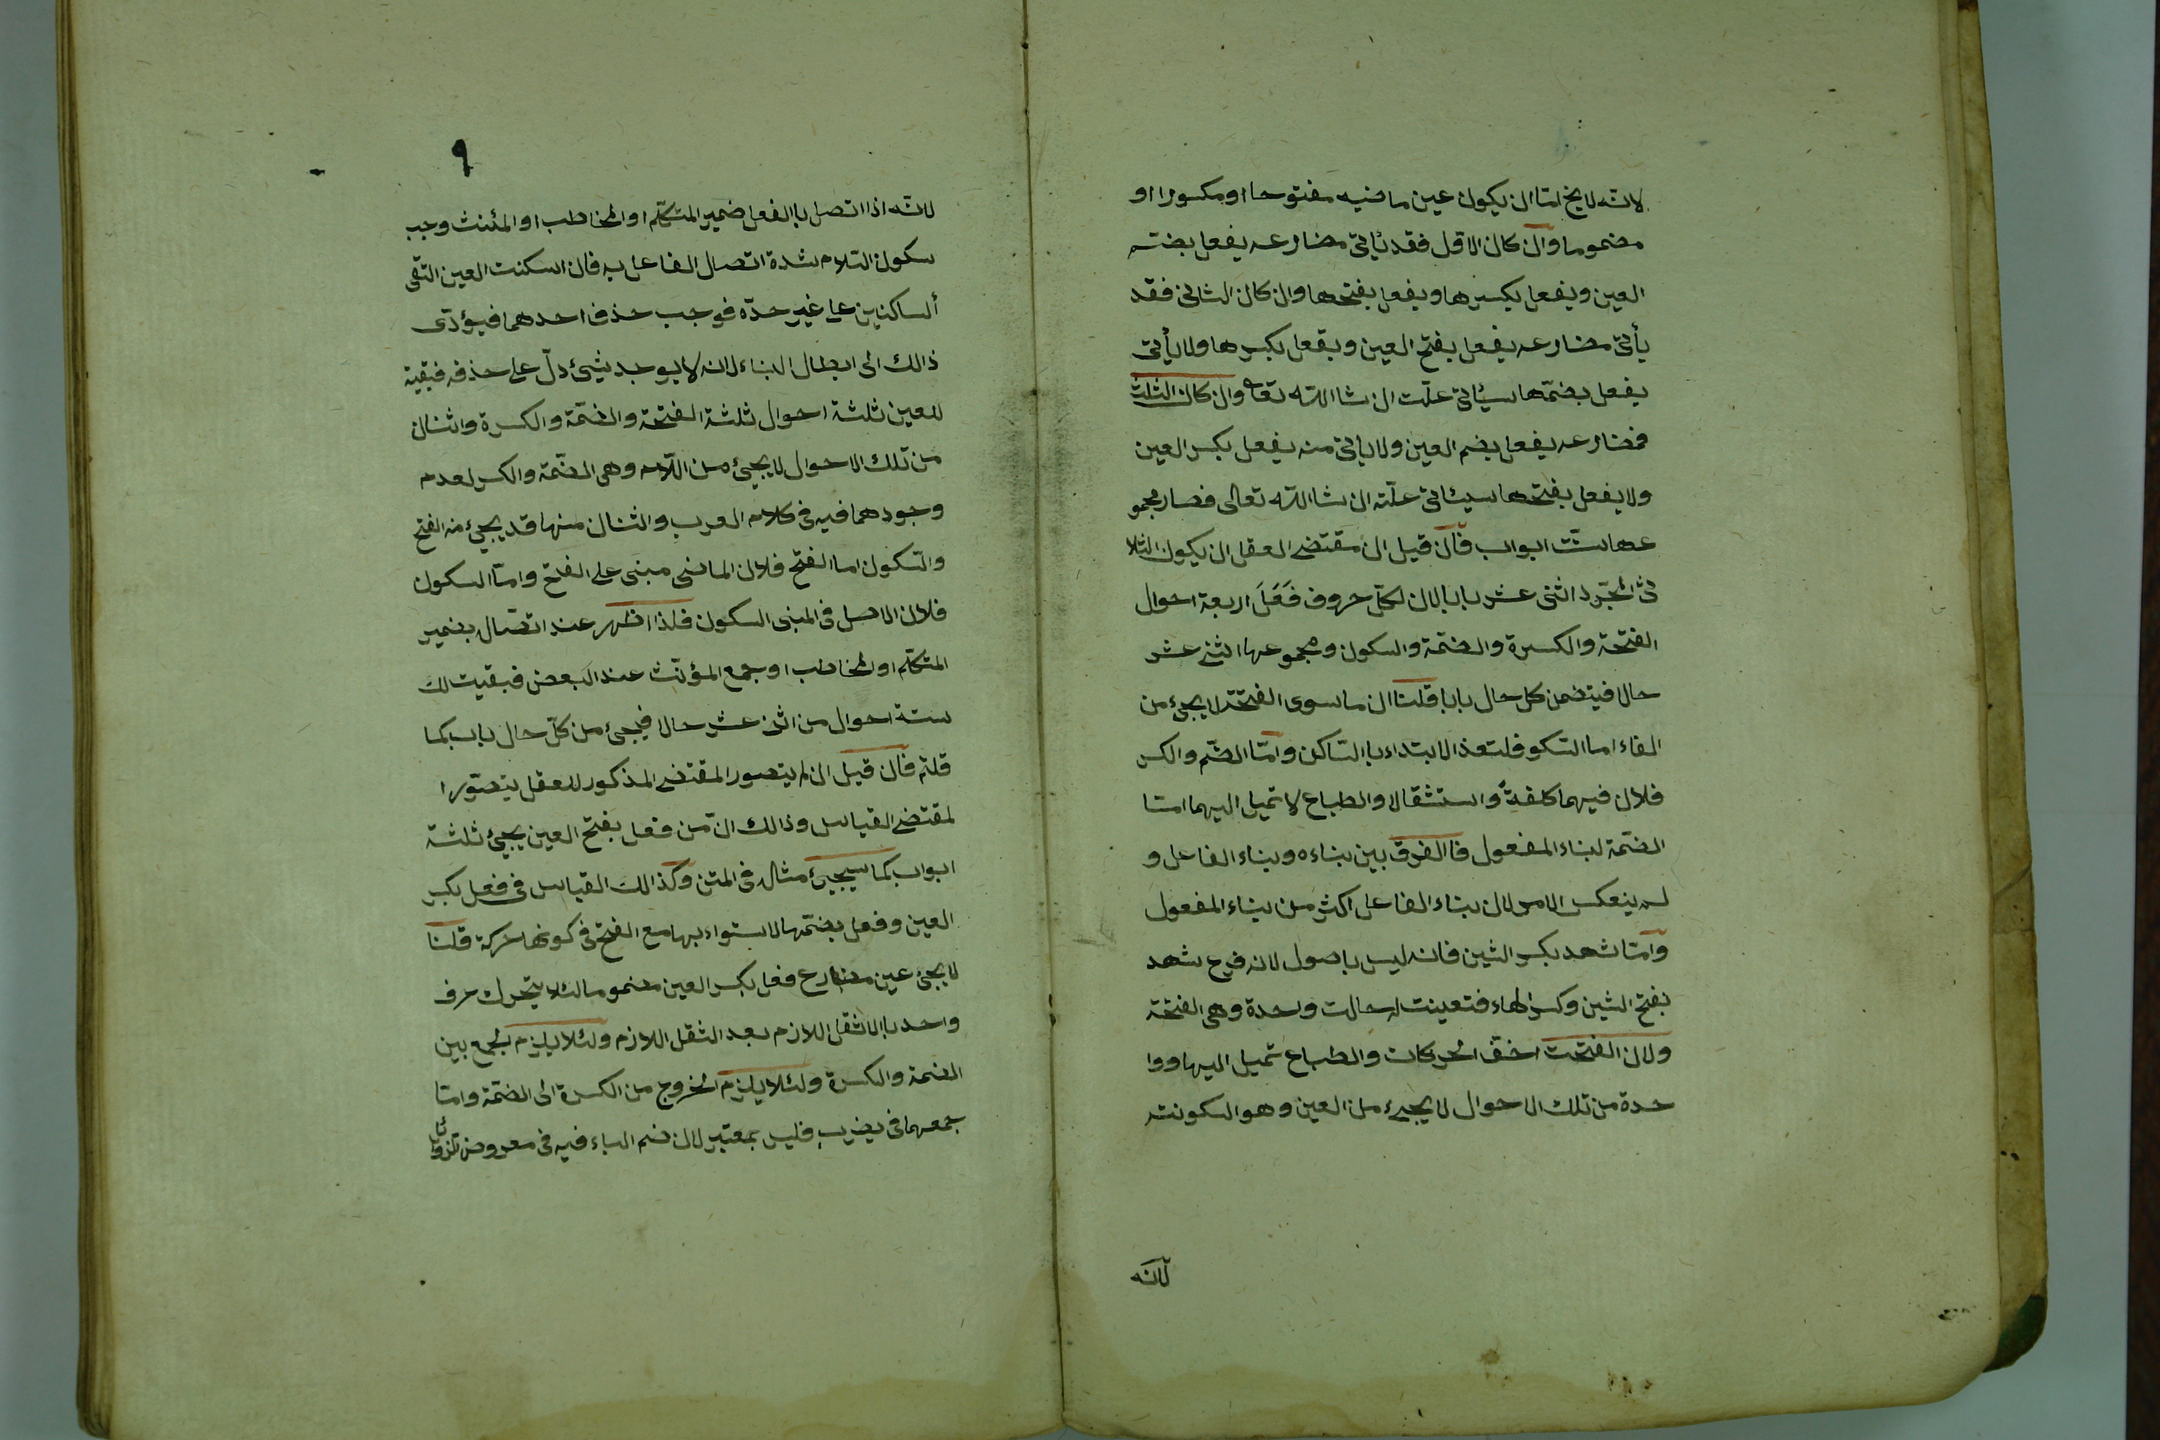 لانه لا يخ اما ان يكون عين ماضيه مفتوحا او مكسورا او
مضموما وان كان الاول فقد يأتى مضارعه يفعل بضمة
العين ويفعل بكسرها ويفعل بفتحها وان كان الثانى فقد
يأتى مضارعه يفعل بفتح العين ويفعل بكسرها ولا يأتى
يفعل بضمّها سيأتى علّت ان شا اللّه تعا وان كان الثلث
فمضارعه يفعل بضم العين ولا ياتى منه يفعل بكسر العين
ولا يفعل بفتحها سيئاتى علّته ان شا اللّه تعالى فصار مجمو
عها ستّت ابواب فان قيل ان مقتضى العقل ان يكون الثلا
ثى المجّرد اثنى عشر بابا لان لكلّ حروف فَعَلَ اربعة احوال
الفتحة والكسرة والضمّة والسكون ومجموعها اثنى عشر
حالا فيتضمن كل حال بابا قلنا ان ما سوى الفتحة لا يجئ من
الفاء اما السّكو فلتعذ الابتداء باالسّاكن وامّا الضّم والكسر
فلان فيهما كلفةً واستثقالا والطباع لا تميل اليهما امّا
الضمّة لبناء المفعول فاالفرق بين بناءه وبناء الفاعل و
لم ينعكس الامر لان بناء الفاعل اكثر من بناء المفعول
وامّا شهد بكسر الشين فانه ليس باصول لانه فرع شهد
بفتح الشين وكسر الهاء فتعينت له حالت وحدة وهى الفتحة
ولان الفتحت اخفّ الحركات والطباع تميل اليها ووا
حدة من تلك الاحوال لا يجئ من العين وهو السكونت
لانه
٩
لانّه اذا اتصل باالفعل ضمير المتكلّم او المخاطب او المئنث وجب
سكون اللام لشدة اتصال الفاعل به فان اسكنت العين التقى
ألساكنين على غير حدّه فوجب حذف احدهما فيؤدّى
ذالك الى ابطال البناء لانه لا يوجد شيئ دلّ على حذفه فبقية
للعين ثلثة احوال ثلثة الفتحة والضّمة والكسرة واثنان
من تلك الاحوال لا يجئ من اللّام وهى الضّمة والكسر لعدم
وجودهما فيه فى كلام العرب والثنان منها قد يجئ منه الفتح
والسّكون اما الفتح فلان الماضى مبنى على الفتح وامّا السكون
فلان الاصل فى المبنى السكون فلذا اظهر عند اتصّاله بضمير
المتكلّم او المخاطب او جمع المؤنّث عند البعض فبقيت لك
ستة احوال من اثنى عشر حالا فيجئ من كلّ حال باب كما
قلتم فان قيل ان لم يتصور المقتضى المذكور للعقل يتصّور ا
لمقتضى القياس وذالك انّ من فعل بفتح العين يجئ ثلثة
ابواب كما سيجئ مثاله فى المتن وكذالك القياس فى فعل بكسر
العين وفعل بضمّها لاستواء بها مع الفتح فى كونها حركة قلنا
لا يجئ عين مضارع فعل بكسر العين مضموما لئلا يتحرك حرف
واحد باالاثقل اللازم بعد الثقل اللازم ولئلا يلزم الجمع بين
الضمة والكسرة ولئلا يلزم الخروج من الكسرة الى الضمّة وامّا
جمعهما فى يضرب فليس بمعتبر لان ضم الباء فيه فى معروض